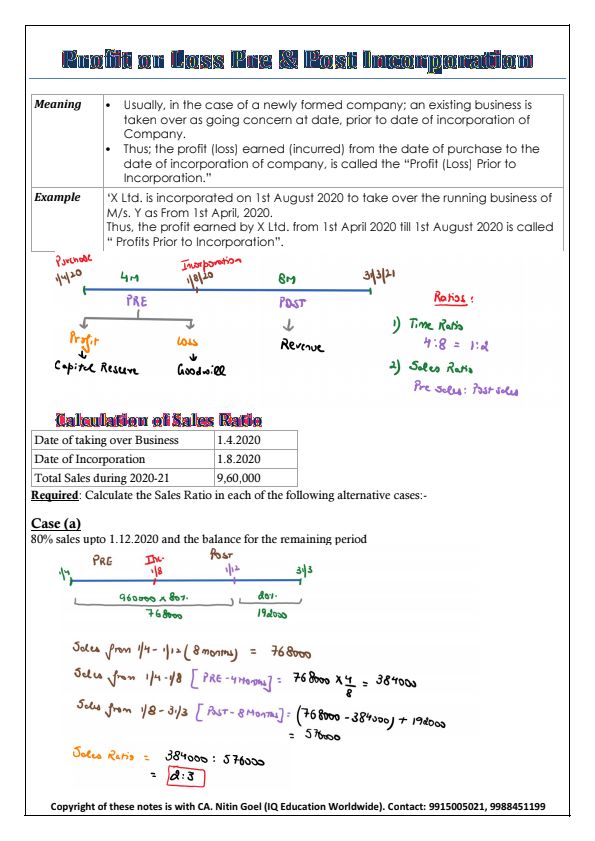 Profit or Loss Pre & Post Incorporation
Meaning
• Usually, in the case of a newly formed company; an existing business is
taken over as going concern at date, prior to date of incorporation of
Company.
• Thus; the profit (loss) earned (incurred) from the date of purchase to the
date of incorporation of company, is called the “Profit (Loss) Prior to
Incorporation.”
Example
‘X Ltd. is incorporated on 1st August 2020 to take over the running business of
M/s. Y as From 1st April, 2020.
Thus, the profit earned by X Ltd. from 1st April 2020 till 1st August 2020 is called
“ Profits Prior to Incorporation”.
Purchase
1/4/20
4M
Incorporation
1/8/20
8M
31/3/21
PRE
POST
Profit
Loss
Revenue
Capital Reserve
Goodwill
Ratios:
1) Time Ratio
4:8 = 1:2
2) Sales Ratio
Pre sales: Post sales
Calculation of Sales Ratio
Date of taking over Business 1.4.2020
Date of Incorporation 1.8.2020
Total Sales during 2020-21 9,60,000
Required: Calculate the Sales Ratio in each of the following alternative cases:-
Case (a)
80% sales upto 1.12.2020 and the balance for the remaining period
PRE Inc. POST
1/4 1/8 1/12 31/3
960000 x 80% 20%
768000 192000
Sales from 1/4 - 1/12 (8 months) = 768000
Sales from 1/4 - 1/8 [PRE - 4 Months] = 768000 x 4/8 = 384000
Sales from 1/8 - 31/3 [Post - 8 Months] = (768000 - 384000) + 192000
= 576000
Sales Ratio = 384000 : 576000
= 2:3
Copyright of these notes is with CA. Nitin Goel (IQ Education Worldwide). Contact: 9915005021, 9988451199